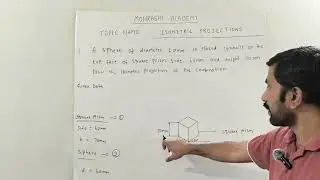 MOHRASHI ACADEMY
TOPIC NAME: ISOMETRIC PROJECTIONS
A sphere of diameter 60mm is placed centrally on the
top face of square prism side 60mm and height 70mm
Draw the isometric projection of the combination.
Given Data
Square Prism → ①
Side = 60mm
h = 70mm
Sphere → ②
d = 60mm
70mm
square prism